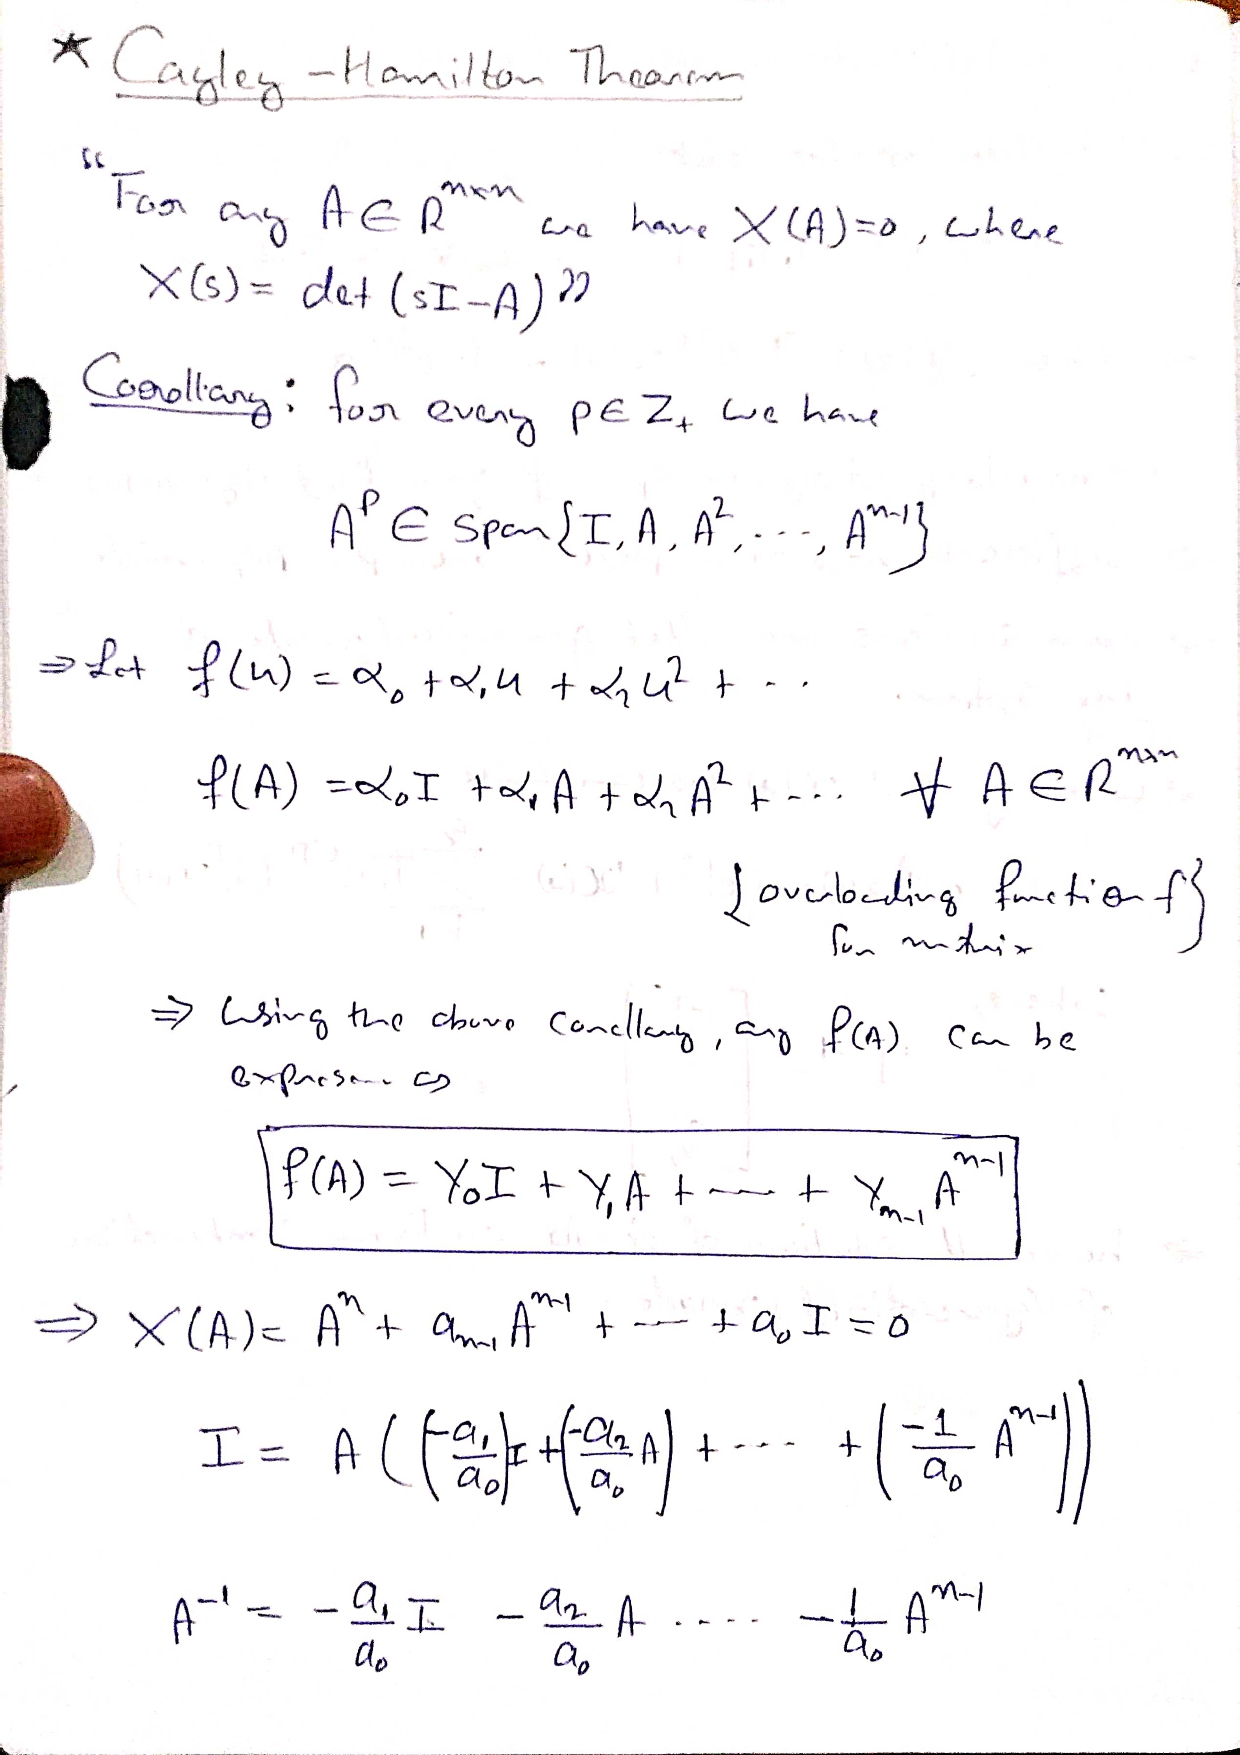 * Cayley-Hamilton Theorem
"For any A ∈ R^{n×n} we have X(A)=0, where
X(s) = det (sI-A)"
Corollary: for every p ∈ Z₊ we have
A^p ∈ Span{I, A, A², ..., A^{n-1}}
⇒ Let f(u) = α₀ + α₁u + α₂u² + ..
f(A) = α₀I + α₁A + α₂A² + .... ∀ A ∈ R^{n×n}
{overloading function f}
for matrix
⇒ Using the above corollary, any f(A) can be
as
f(A) = Y₀I + Y₁A + --- + Y_{n-1} A^{n-1}
⇒ X(A) = A^n + a_{n-1} A^{n-1} + --- + a₀ I = 0
I = A ((-a₁/a₀)I + (-a₂/a₀ A) + ---- + (-1/a₀ A^{n-1}))
A^{-1} = -a₁/a₀ I - a₂/a₀ A .... - 1/a₀ A^{n-1}